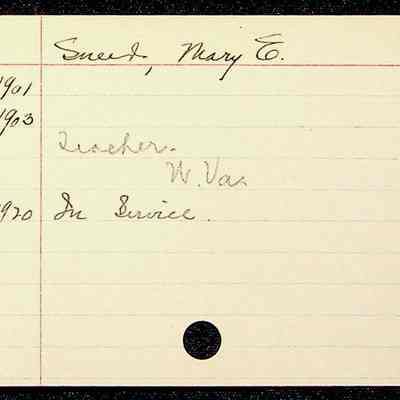 Sneed, Mary E.
1901
1903
Teacher.
W. Va.
1920 In Service.